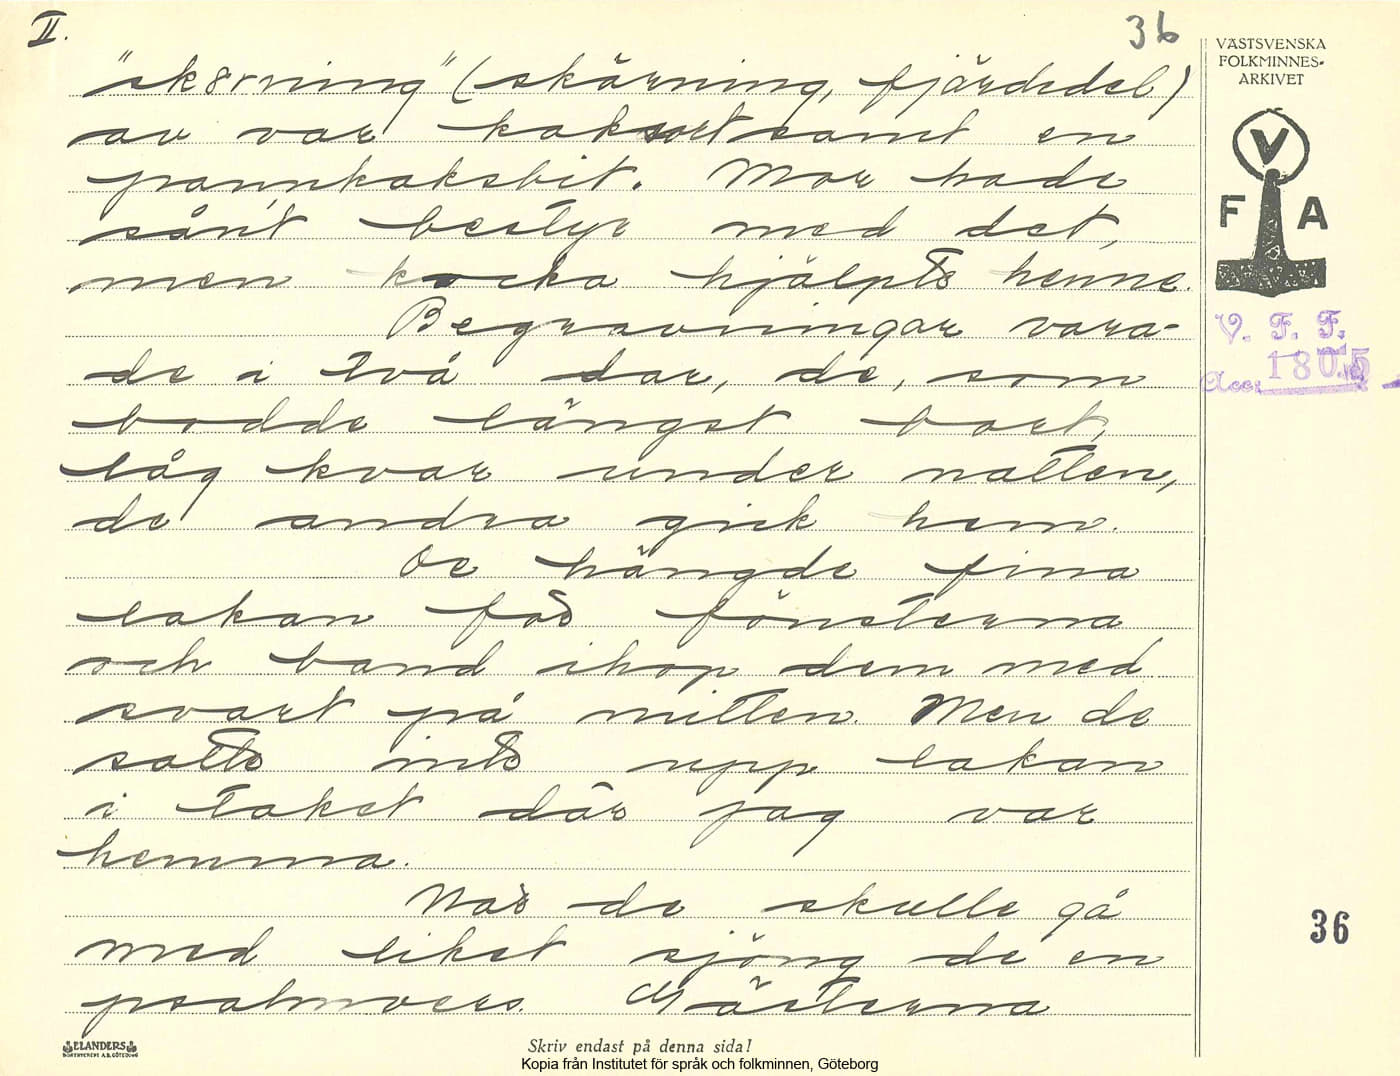 II.
36
"skörning" (skärning, fjärdedel)
av var kaksort samt en
pannkaksbit. Mor hade
sånt bestyr med det,
men kocka hjälpte henne.
Begravningar vara-
de i två dar, de, som
bodde längst bort,
låg kvar under natten,
de andra gick hem.
De hängde fina
lakan för fönsterna
och band ihop dem med
svart på mitten. Men de
satte inte upp lakan
i taket där jag var
hemma.
När de skulle gå
med liket sjöng de en
psalmvers. Gästerna
VÄSTSVENSKA
FOLKMINNES-
ARKIVET
V
F A
V. F. F.
Acc. 1805
36
ELANDERS
BOKTRYCKERI A.B. GÖTEBORG
Skriv endast på denna sida!
Kopia från Institutet för språk och folkminnen, Göteborg